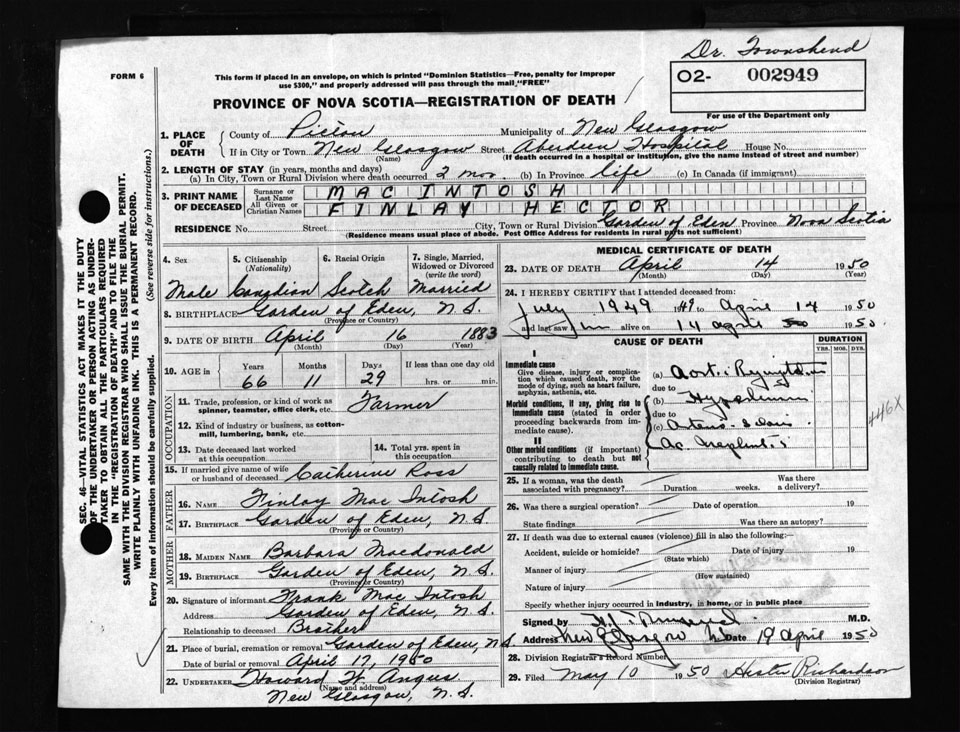 Dr. Townshend
FORM 6
This form if placed in an envelope, on which is printed "Dominion Statistics—Free, penalty for improper
use $300," and properly addressed will pass through the mail "FREE"
O2- 002949
For use of the Department only
PROVINCE OF NOVA SCOTIA—REGISTRATION OF DEATH
SEC. 46—VITAL STATISTICS ACT MAKES IT THE DUTY
OF THE UNDERTAKER OR PERSON ACTING AS UNDER-
TAKER TO OBTAIN ALL THE PARTICULARS REQUIRED
IN THE "REGISTRATION OF DEATH" AND TO FILE THE
SAME WITH THE DIVISION REGISTRAR WHO SHALL ISSUE THE BURIAL PERMIT.
WRITE PLAINLY WITH UNFADING INK. THIS IS A PERMANENT RECORD.
Every item of information should be carefully supplied. (See reverse side for instructions.)
1. PLACE OF DEATH County of Pictou Municipality of New Glasgow
If in City or Town New Glasgow Street Aberdeen Hospital House No.
(Name) (If death occurred in a hospital or institution, give the name instead of street and number)
2. LENGTH OF STAY (in years, months and days)
(a) In City, Town or Rural Division where death occurred 2 mos. (b) In Province life (c) In Canada (if immigrant)
3. PRINT NAME OF DECEASED Surname or Last Name MAC INTOSH
All Given or Christian Names FINLAY HECTOR
RESIDENCE No. Street City, Town or Rural Division Garden of Eden Province Nova Scotia
(Residence means usual place of abode. Post Office Address for residents in rural parts not sufficient)
4. Sex 5. Citizenship (Nationality) 6. Racial Origin 7. Single, Married, Widowed or Divorced (write the word)
Male Canadian Scotch Married
8. BIRTHPLACE Garden of Eden, N.S.
(Province or Country)
9. DATE OF BIRTH April 16 1883
(Month) (Day) (Year)
10. AGE in Years Months Days If less than one day old
66 11 29 hrs. or min.
OCCUPATION
11. Trade, profession, or kind of work as
spinner, teamster, office clerk, etc. Farmer
12. Kind of industry or business, as cotton-
mill, lumbering, bank, etc.
13. Date deceased last worked at this occupation 14. Total yrs. spent in this occupation
15. If married give name of wife
or husband of deceased Catherine Ross
FATHER
16. NAME Finlay Mac Intosh
17. BIRTHPLACE Garden of Eden, N.S.
MOTHER
18. MAIDEN NAME Barbara Macdonald
19. BIRTHPLACE Garden of Eden, N.S.
(Province or Country)
20. Signature of informant Frank Mac Intosh
Address Garden of Eden, N.S.
Relationship to deceased Brother
21. Place of burial, cremation or removal Garden of Eden, N.S.
Date of burial or removal April 17, 1950
22. UNDERTAKER Howard W. Angus
(Name and address)
New Glasgow, N.S.
MEDICAL CERTIFICATE OF DEATH
23. DATE OF DEATH April 14 1950
(Month) (Day) (Year)
24. I HEREBY CERTIFY that I attended deceased from:
July 1949 1949 to April 14 1950
and last saw him alive on 14 April 50 1950
CAUSE OF DEATH DURATION
YRS. MOS. DYS.
I
Immediate cause
Give disease, injury or compli-
cation which caused death, NOT the
mode of dying, such as heart failure,
asphyxia, asthenia, etc.
(a)
due to
Morbid conditions, if any, giving rise to
immediate cause (stated in order
proceeding backwards from im-
mediate cause).
(b)
due to
(c)
II
Other morbid conditions (if important)
contributing to death but not
causally related to immediate cause.
446X
25. If a woman, was the death
associated with pregnancy? Duration weeks. Was there a delivery?
26. Was there a surgical operation? Date of operation 19
State findings Was there an autopsy?
27. If death was due to external causes (violence) fill in also the following:—
Accident, suicide or homicide? Date of injury 19
(State which)
Manner of injury
(How sustained)
Nature of injury
Specify whether injury occurred in industry, in home, or in public place
Signed by M.D.
Address New Glasgow Date 19 April 1950
28. Division Registrar's Record Number
29. Filed May 10 1950 Hester Richardson
(Division Registrar)